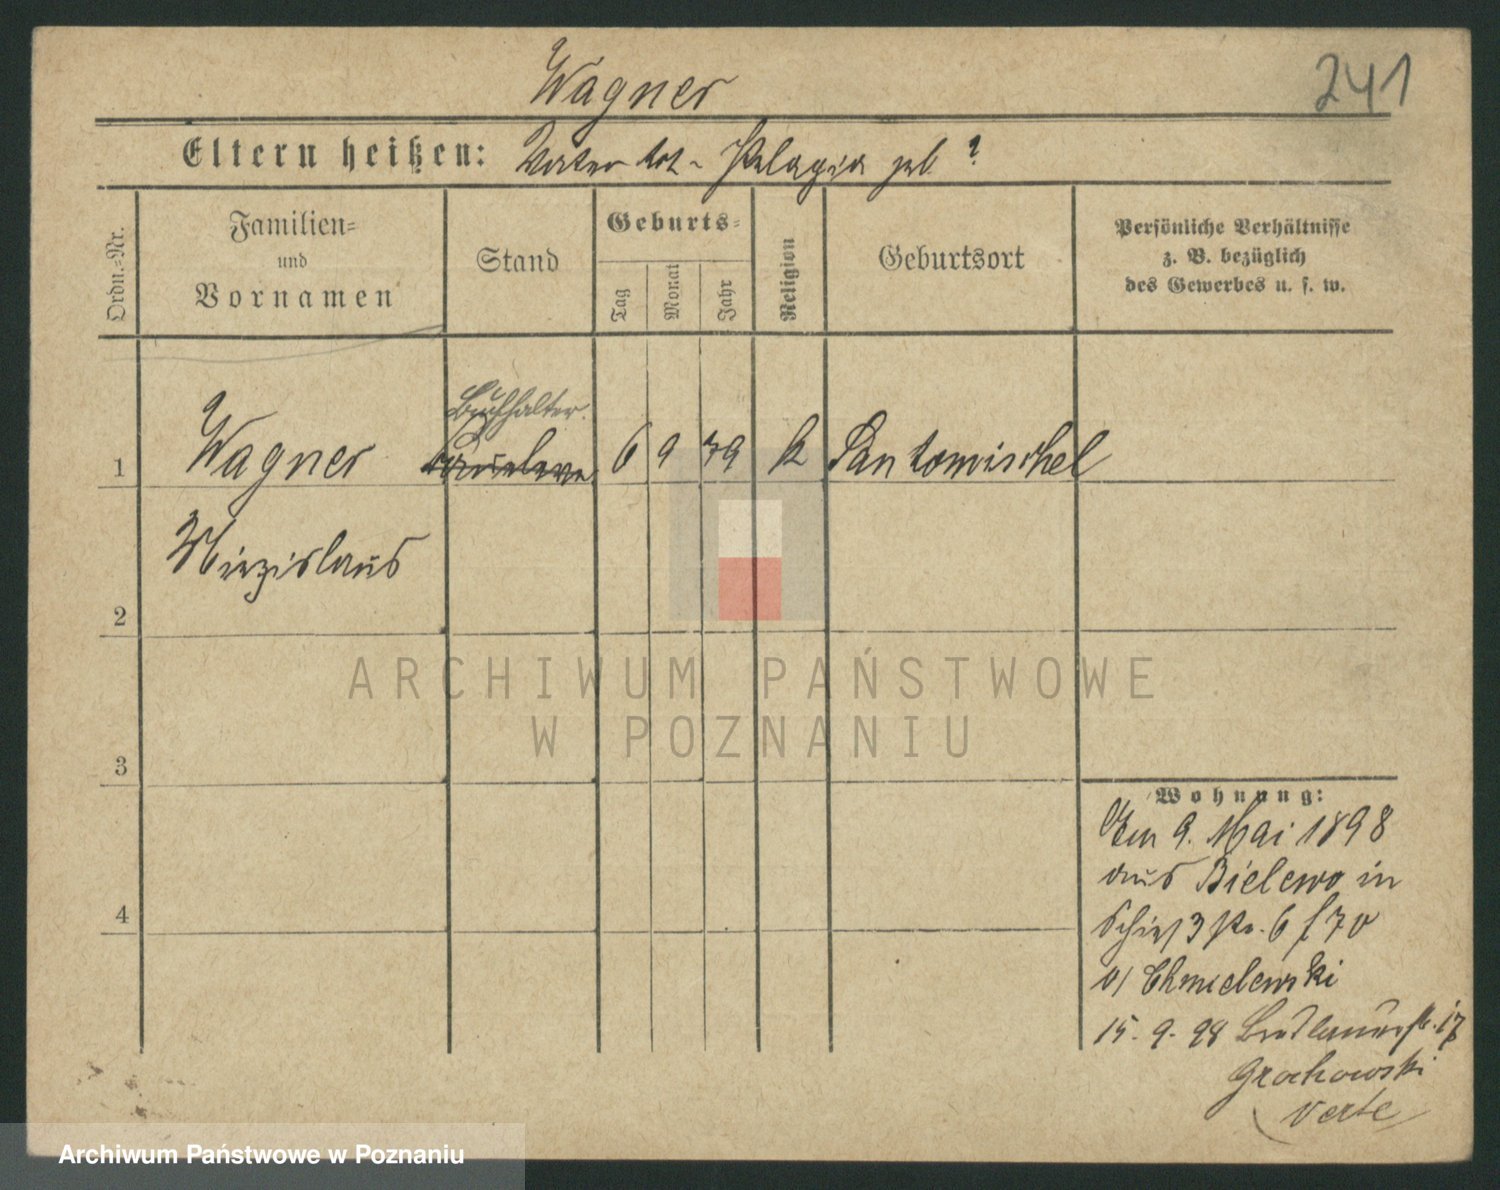 Wagner
241
Eltern heißen: Vater tot - Pelagia geb. ?
Ordn.=Nr.
Familien=
und
Vornamen
Stand
Geburts=
Tag
Monat
Jahr
Religion
Geburtsort
Persönliche Verhältnisse
z. B. bezüglich
des Gewerbes u. s. w.
Buchhalter.
1 Wagner 6 9 79 k Santomischel
Miezislaus
2
3
4
ARCHIWUM PAŃSTWOWE
W POZNANIU
Wohnung:
Am 9. Mai 1898
aus Bielewo in
6 f 70
b/ Chmielewski
15. 9. 98 17
Grochowski
verte
Archiwum Państwowe w Poznaniu